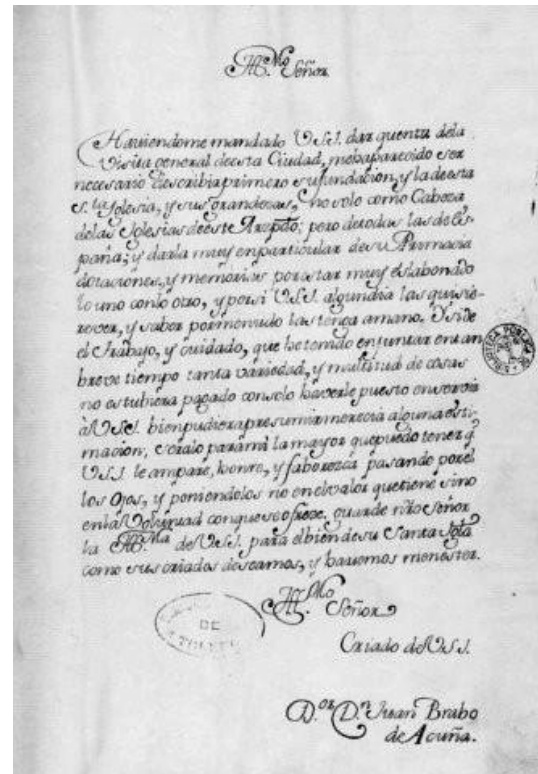 Ill.mo Señor
Haviendome mandado V.S.I. dar quenta dela
Visita general de esta Ciudad, mehaparesido ser
necesario describir primero su fundacion, y la de esta
S.ta Iglesia, y sus grandezas, no solo como Cabeza
delas Iglesias de este Arzpdo; pero de todas las de Es-
paña; y darla muy en particular de su Primacia
dotaciones, y memorias por estar muy eslabonado
lo uno con lo otro, y por si V.S.I. algun dia las quisie-
re ver, y saber pormenudo las tenga amano. Y si de
el trabajo, y cuidado, que he tenido en juntar en tan
breve tiempo tanta variedad, y multitud de cosas
no estubiera pagado consolo haverle puesto en servir
à V.S.I. bien pudiera presumir merecia alguna esti-
macion, seralo para mi la mayor que puedo tener q.
V.S.I. le ampare, honre, y faborezca pasando por el
los ojos, y poniendolos no en el valor que tiene sino
en la Voluntad con que se ofreze. guarde nřo Señor
la Ill.ma de V.S.I. para el bien de su Santa Igla
como sus criados deseamos, y havemos menester.
Ill.mo Señor
Criado de V.S.I.
D.or D.n Juan Brabo
de Acuña.
BIBLIOTECA PUBLICA DE
DE
TOLEDO